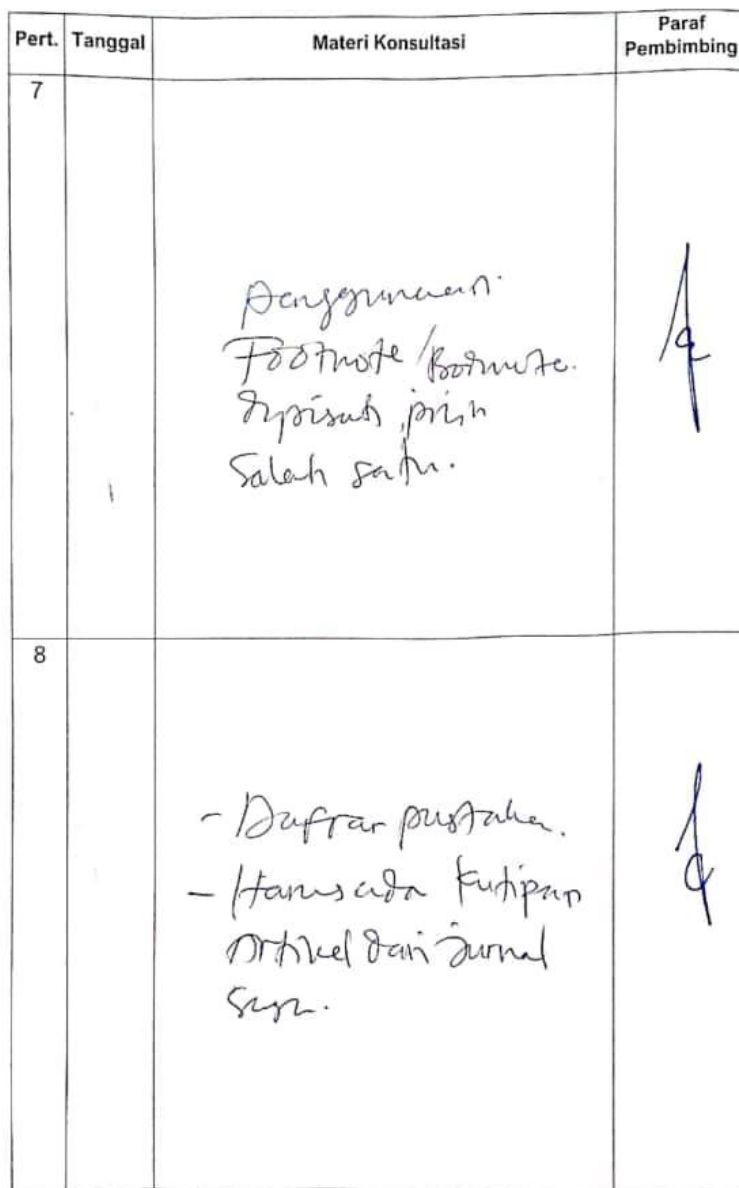 Pert. Tanggal Materi Konsultasi Paraf Pembimbing
7
Penggunaan
Footnote/Bodynote.
dipisah, pilih
Salah satu.
8
- Daftar pustaka.
- Harus ada kutipan
Artikel dari Jurnal